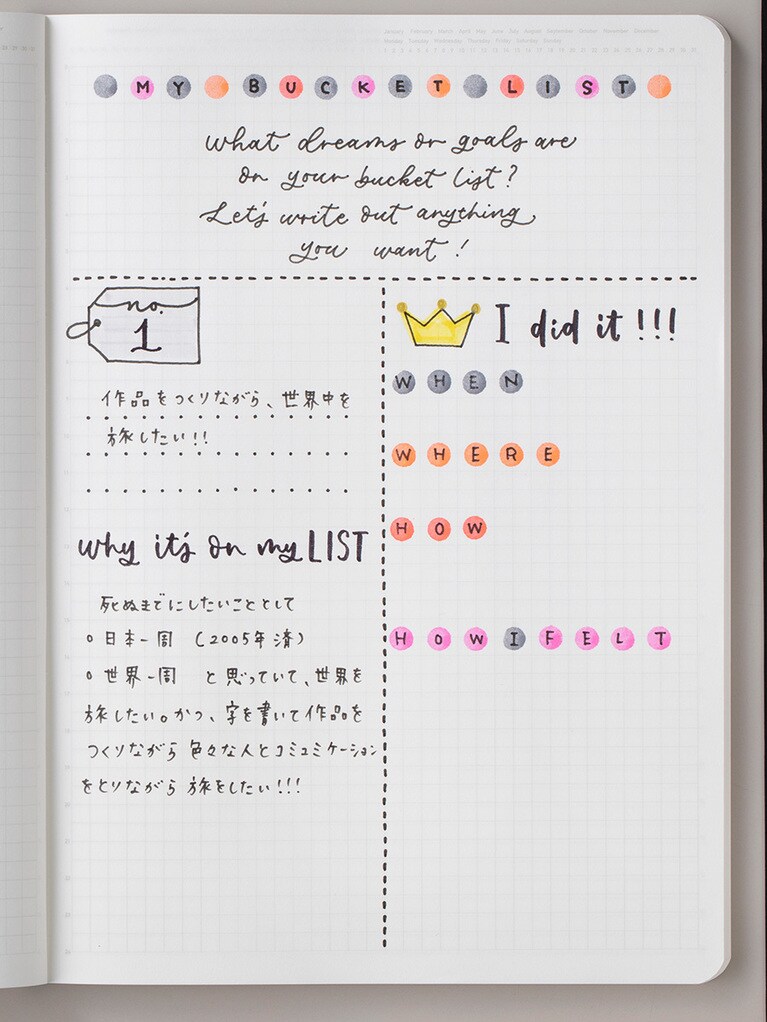 January February March April May June July August September October November December
Monday Tuesday Wednesday Thursday Friday Saturday Sunday
MY BUCKET LIST
What dreams or goals are
on your bucket list?
Let's write out anything
you want!
no.
1
作品をつくりながら、世界中を
旅したい!!
why it's on my LIST
死ぬまでにしたいこととして
○日本一周 (2005年済)
○世界一周 と思っていて、世界を
旅したい。かつ、字を書いて作品を
つくりながら色々な人とコミュミケーション
をとりながら旅をしたい!!!
I did it!!!
WHEN
WHERE
HOW
HOW I FELT